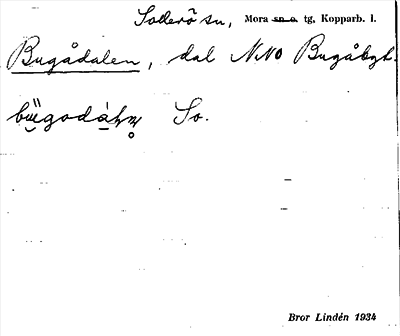 Sollerö sn, Mora sn o. tg, Kopparb. l.
Bugådalen, dal NNO Bugåbgt.
So.
Bror Lindén 1934